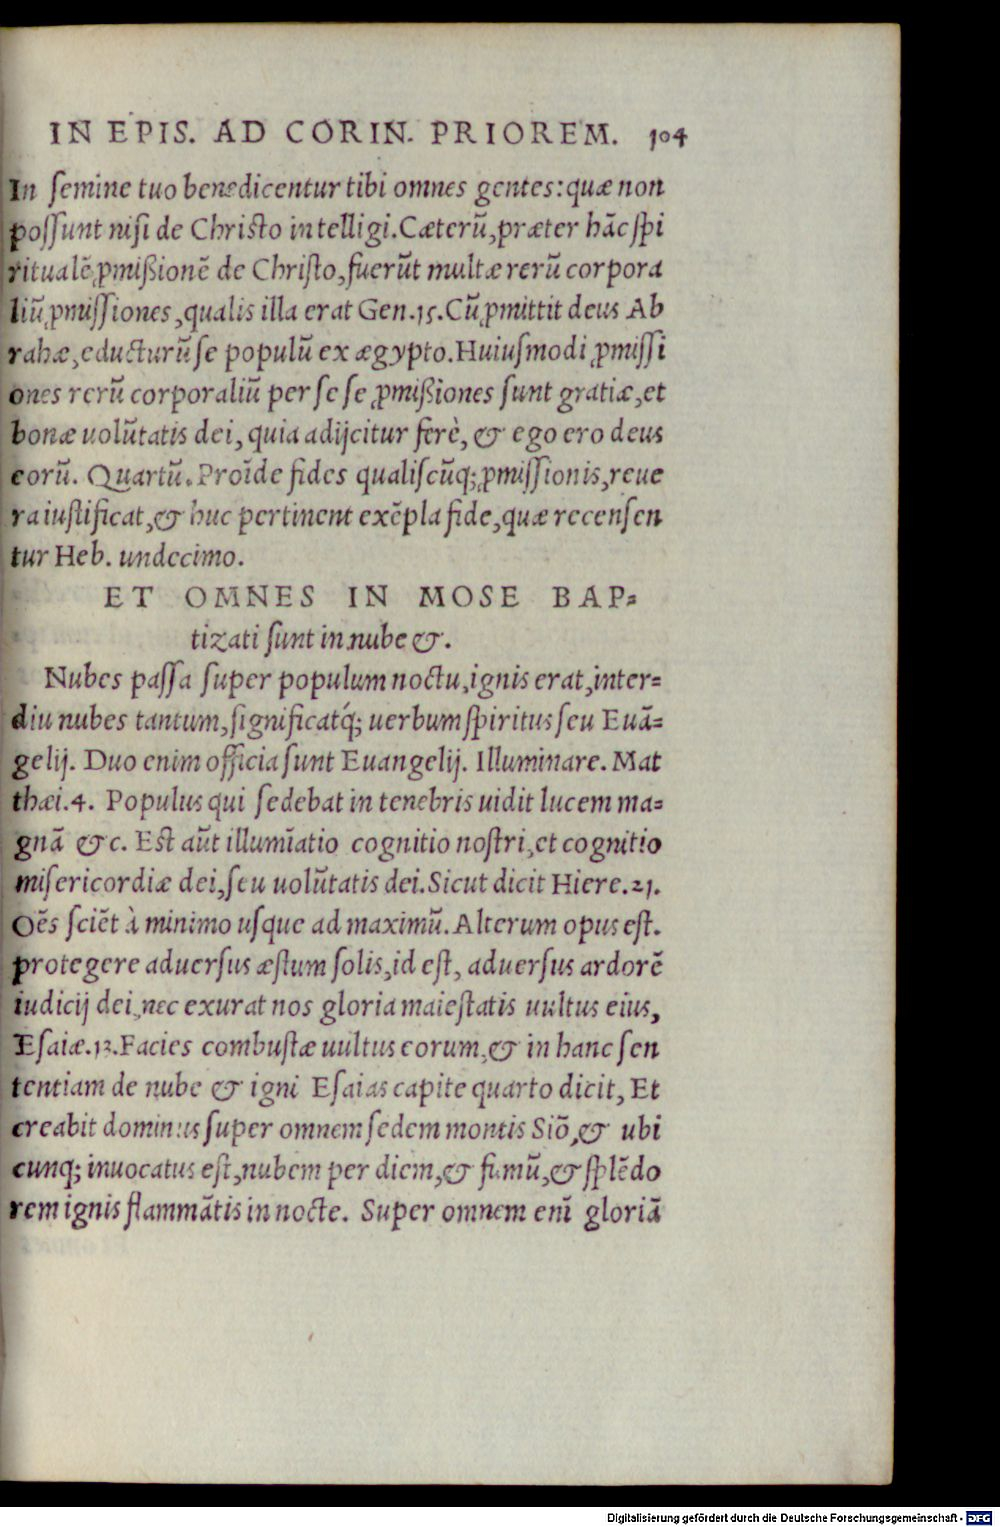 IN EPIS. AD CORIN. PRIOREM. 104
In ſemine tuo benedicentur tibi omnes gentes: quæ non
poſſunt niſi de Chriſto intelligi. Cæterũ, præter hãc ſpi
ritualẽ ꝓmiſſionẽ de Chriſto, fuerũt multæ rerũ corpora
liũ ꝓmiſſiones, qualis illa erat Gen. 15. Cũ ꝓmittit deus Ab
rahæ, educturũ ſe populũ ex ægypto. Huiuſmodi ꝓmiſſi
ones rerũ corporaliũ per ſe ſe ꝓmiſſiones ſunt gratiæ, et
bonæ uolũtatis dei, quia adijcitur ferè, & ego ero deus
eorũ. Quartũ. Proĩde fides qualiſcũq; ꝓmiſſionis, reue
ra iuſtificat, & huc pertinent exẽpla fide, quæ recenſen
tur Heb. undecimo.
ET OMNES IN MOSE BAP=
tizati ſunt in nube &.
Nubes paſſa ſuper populum noctu, ignis erat, inter=
diu nubes tantum, ſignificatq́; uerbum ſpiritus ſeu Euã=
gelij. Duo enim officia ſunt Euangelij. Illuminare. Mat
thæi. 4. Populus qui ſedebat in tenebris uidit lucem ma=
gnã &c. Eſt aũt illumĩatio cognitio noſtri, et cognitio
miſericordiæ dei, ſeu uolũtatis dei. Sicut dicit Hiere. 21.
Oẽs ſciẽt à minimo uſque ad maximũ. Alterum opus eſt.
protegere aduerſus æſtum ſolis, id eſt, aduerſus ardorẽ
iudicij dei, nec exurat nos gloria maieſtatis uultus eius,
Eſaiæ. 13. Facies combuſtæ uultus eorum, & in hanc ſen
tentiam de nube & igni Eſaias capite quarto dicit, Et
creabit dominus ſuper omnem ſedem montis Siõ, & ubi
cunq; inuocatus eſt, nubem per diem, & fumũ, & ſplẽdo
rem ignis flammãtis in nocte. Super omnem enĩ gloriã
Digitalisierung gefördert durch die Deutsche Forschungsgemeinschaft - DFG